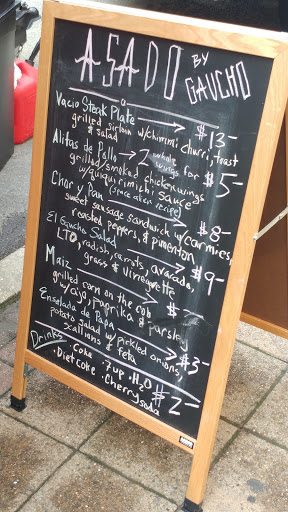 ASADO BY
GAUCHO
Vacio Steak Plate → $13-
grilled sirloin w/chimmi churri, toast
& salad
Alitas de Pollo → 2 whole wings for $5-
grilled/smoked chicken wings
w/quiquirimichi sauce
Chori Pan (Specation recipe)
sweet sausage sandwich w/carmies, $8-
roasted peppers, & pimenton
El Gaucho Salad
LTO, radish, carrots, avacado, $9-
grass & vinegrette
Maiz
grilled corn on the cob
w/ajo, paprika & parsley
Enselada de Papa $3-
potato salad w/pickled onions,
scallions & feta
Drinks • Coke • 7up • H2O $2-
• Diet coke • Cherry soda